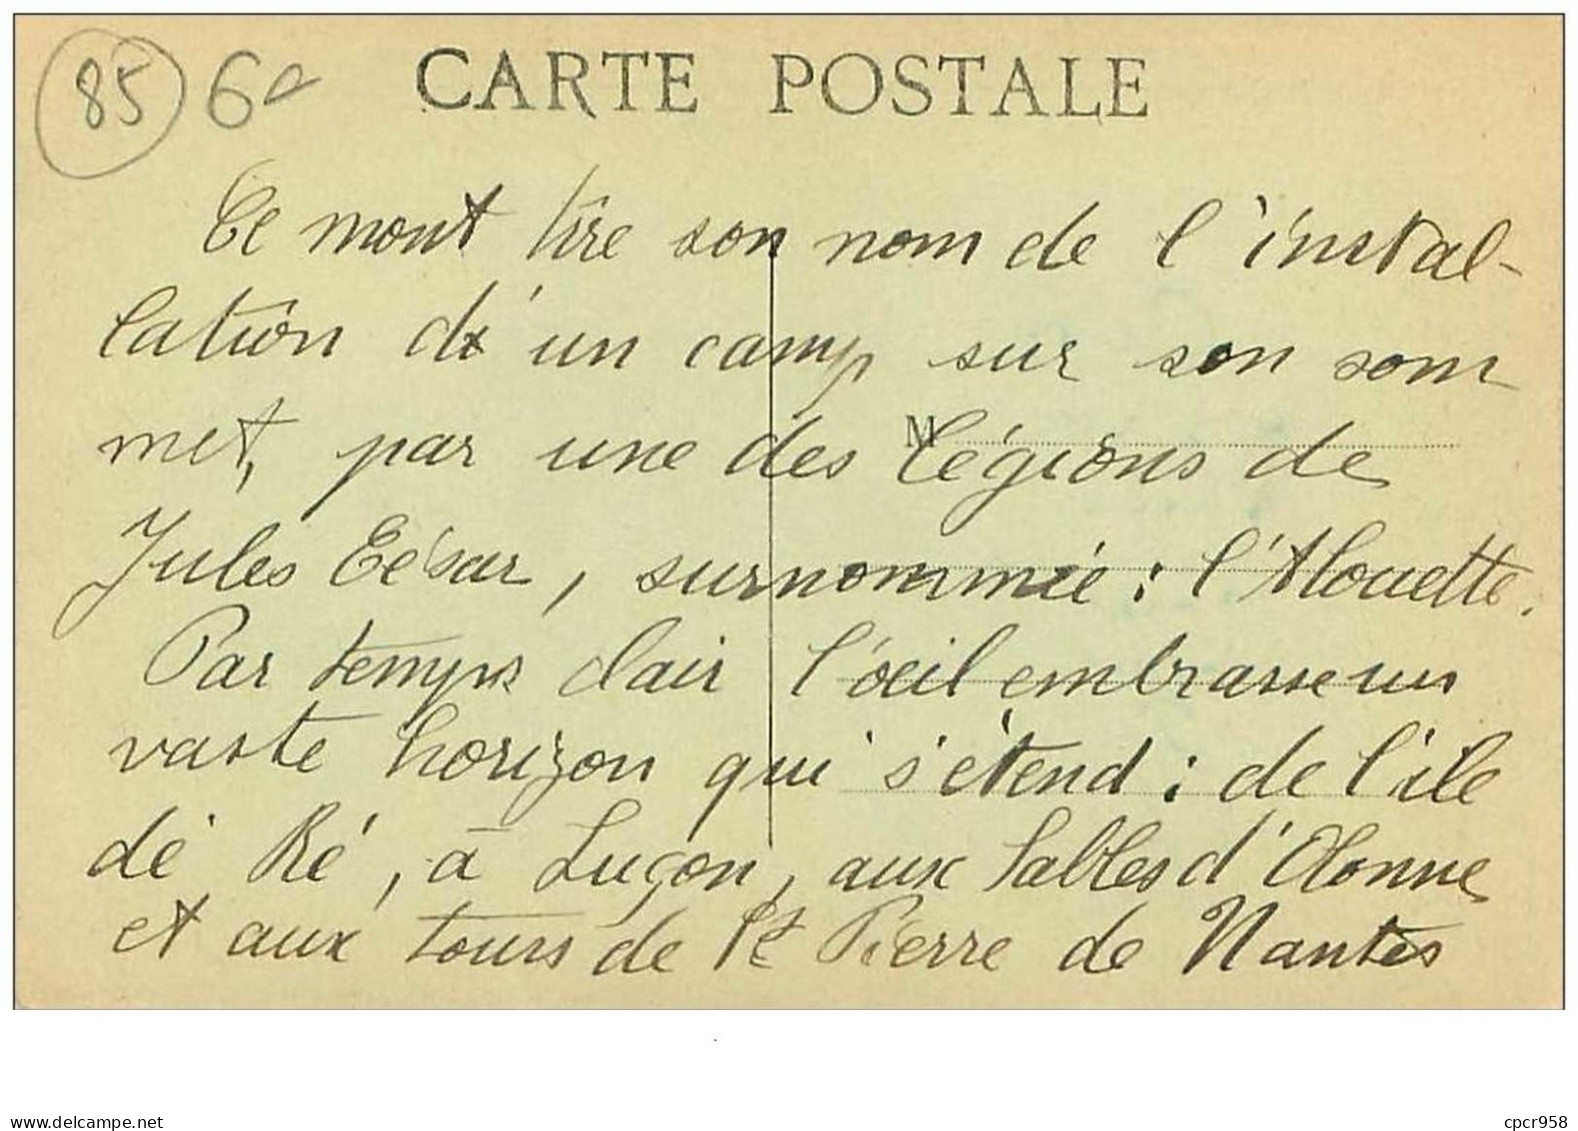 85 6
CARTE POSTALE
Ce mont tire son nom de l'instal-
lation d'un camp sur son som
met, par une des légions de
M
Jules César, surnommée : l'Alouette.
Par temps clair l'oeil embrasse un
vaste horizon qui s'étend : de l'ile
de Ré, à Luçon, aux Sables d'Olonne
et aux tours de St Pierre de Nantes
www.delcampe.net
cpcr958